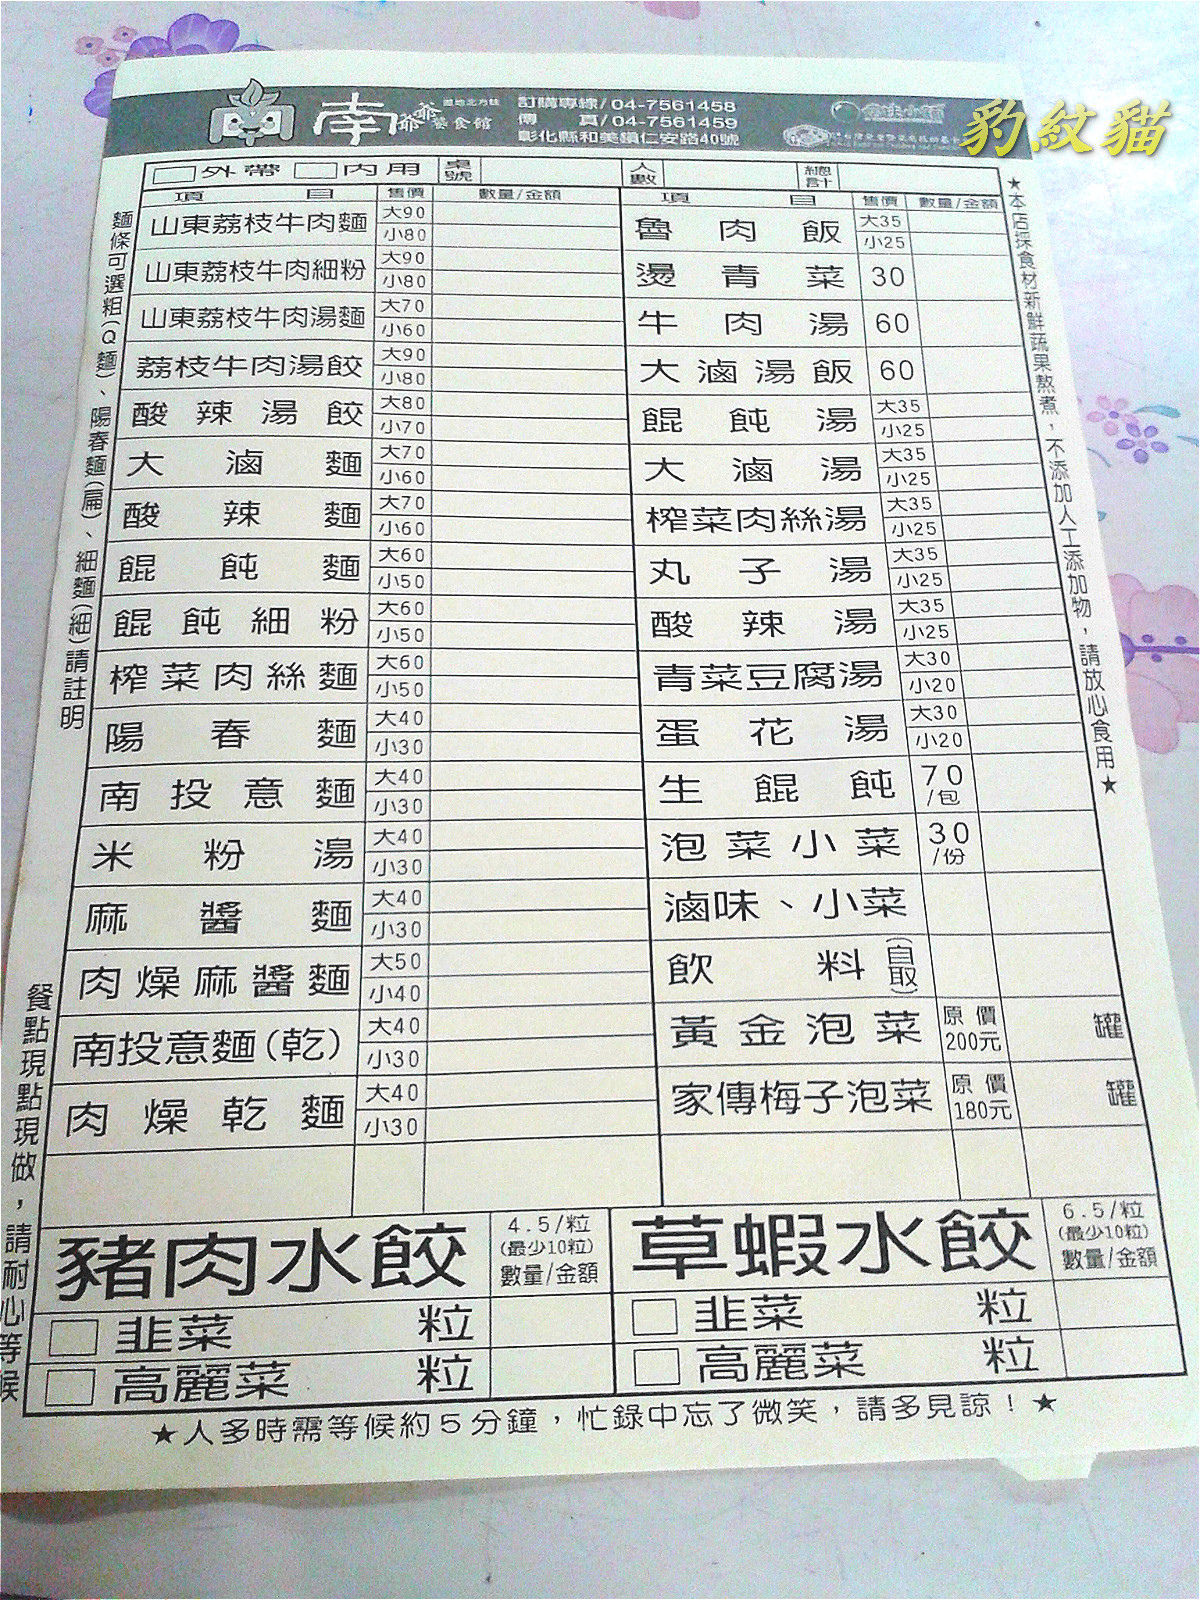 南 南爺爺餐食館 道地北方味
訂購專線/04-7561458
傳 真/04-7561459
彰化縣和美鎮仁安路40號
豹紋貓
□外帶 □內用 桌號 人數 總計
項目 售價 數量/金額 項目 售價 數量/金額
山東荔枝牛肉麵 大90 小80
山東荔枝牛肉細粉 大90 小80
山東荔枝牛肉湯麵 大70 小60
荔枝牛肉湯餃 大90 小80
酸辣湯餃 大80 小70
大滷麵 大70 小60
酸辣麵 大70 小60
餛飩麵 大60 小50
餛飩細粉 大60 小50
榨菜肉絲麵 大60 小50
陽春麵 大40 小30
南投意麵 大40 小30
米粉湯 大40 小30
麻醬麵 大40 小30
肉燥麻醬麵 大50 小40
南投意麵(乾) 大40 小30
肉燥乾麵 大40 小30
魯肉飯 大35 小25
燙青菜 30
牛肉湯 60
大滷湯飯 60
餛飩湯 大35 小25
大滷湯 大35 小25
榨菜肉絲湯 大35 小25
丸子湯 大35 小25
酸辣湯 大35 小25
青菜豆腐湯 大30 小20
蛋花湯 大30 小20
生餛飩 70/包
泡菜小菜 30/份
滷味、小菜
飲料(自取)
黃金泡菜 原價200元 罐
家傳梅子泡菜 原價180元 罐
豬肉水餃 4.5/粒 (最少10粒) 數量/金額
□韭菜 粒
□高麗菜 粒
草蝦水餃 6.5/粒 (最少10粒) 數量/金額
□韭菜 粒
□高麗菜 粒
麵條可選粗(Q麵)、陽春麵(扁)、細麵(細)請註明
餐點現點現做，請耐心等候
★本店採食材新鮮蔬果熬煮，不添加人工添加物，請放心食用★
★人多時需等候約5分鐘，忙錄中忘了微笑，請多見諒！★